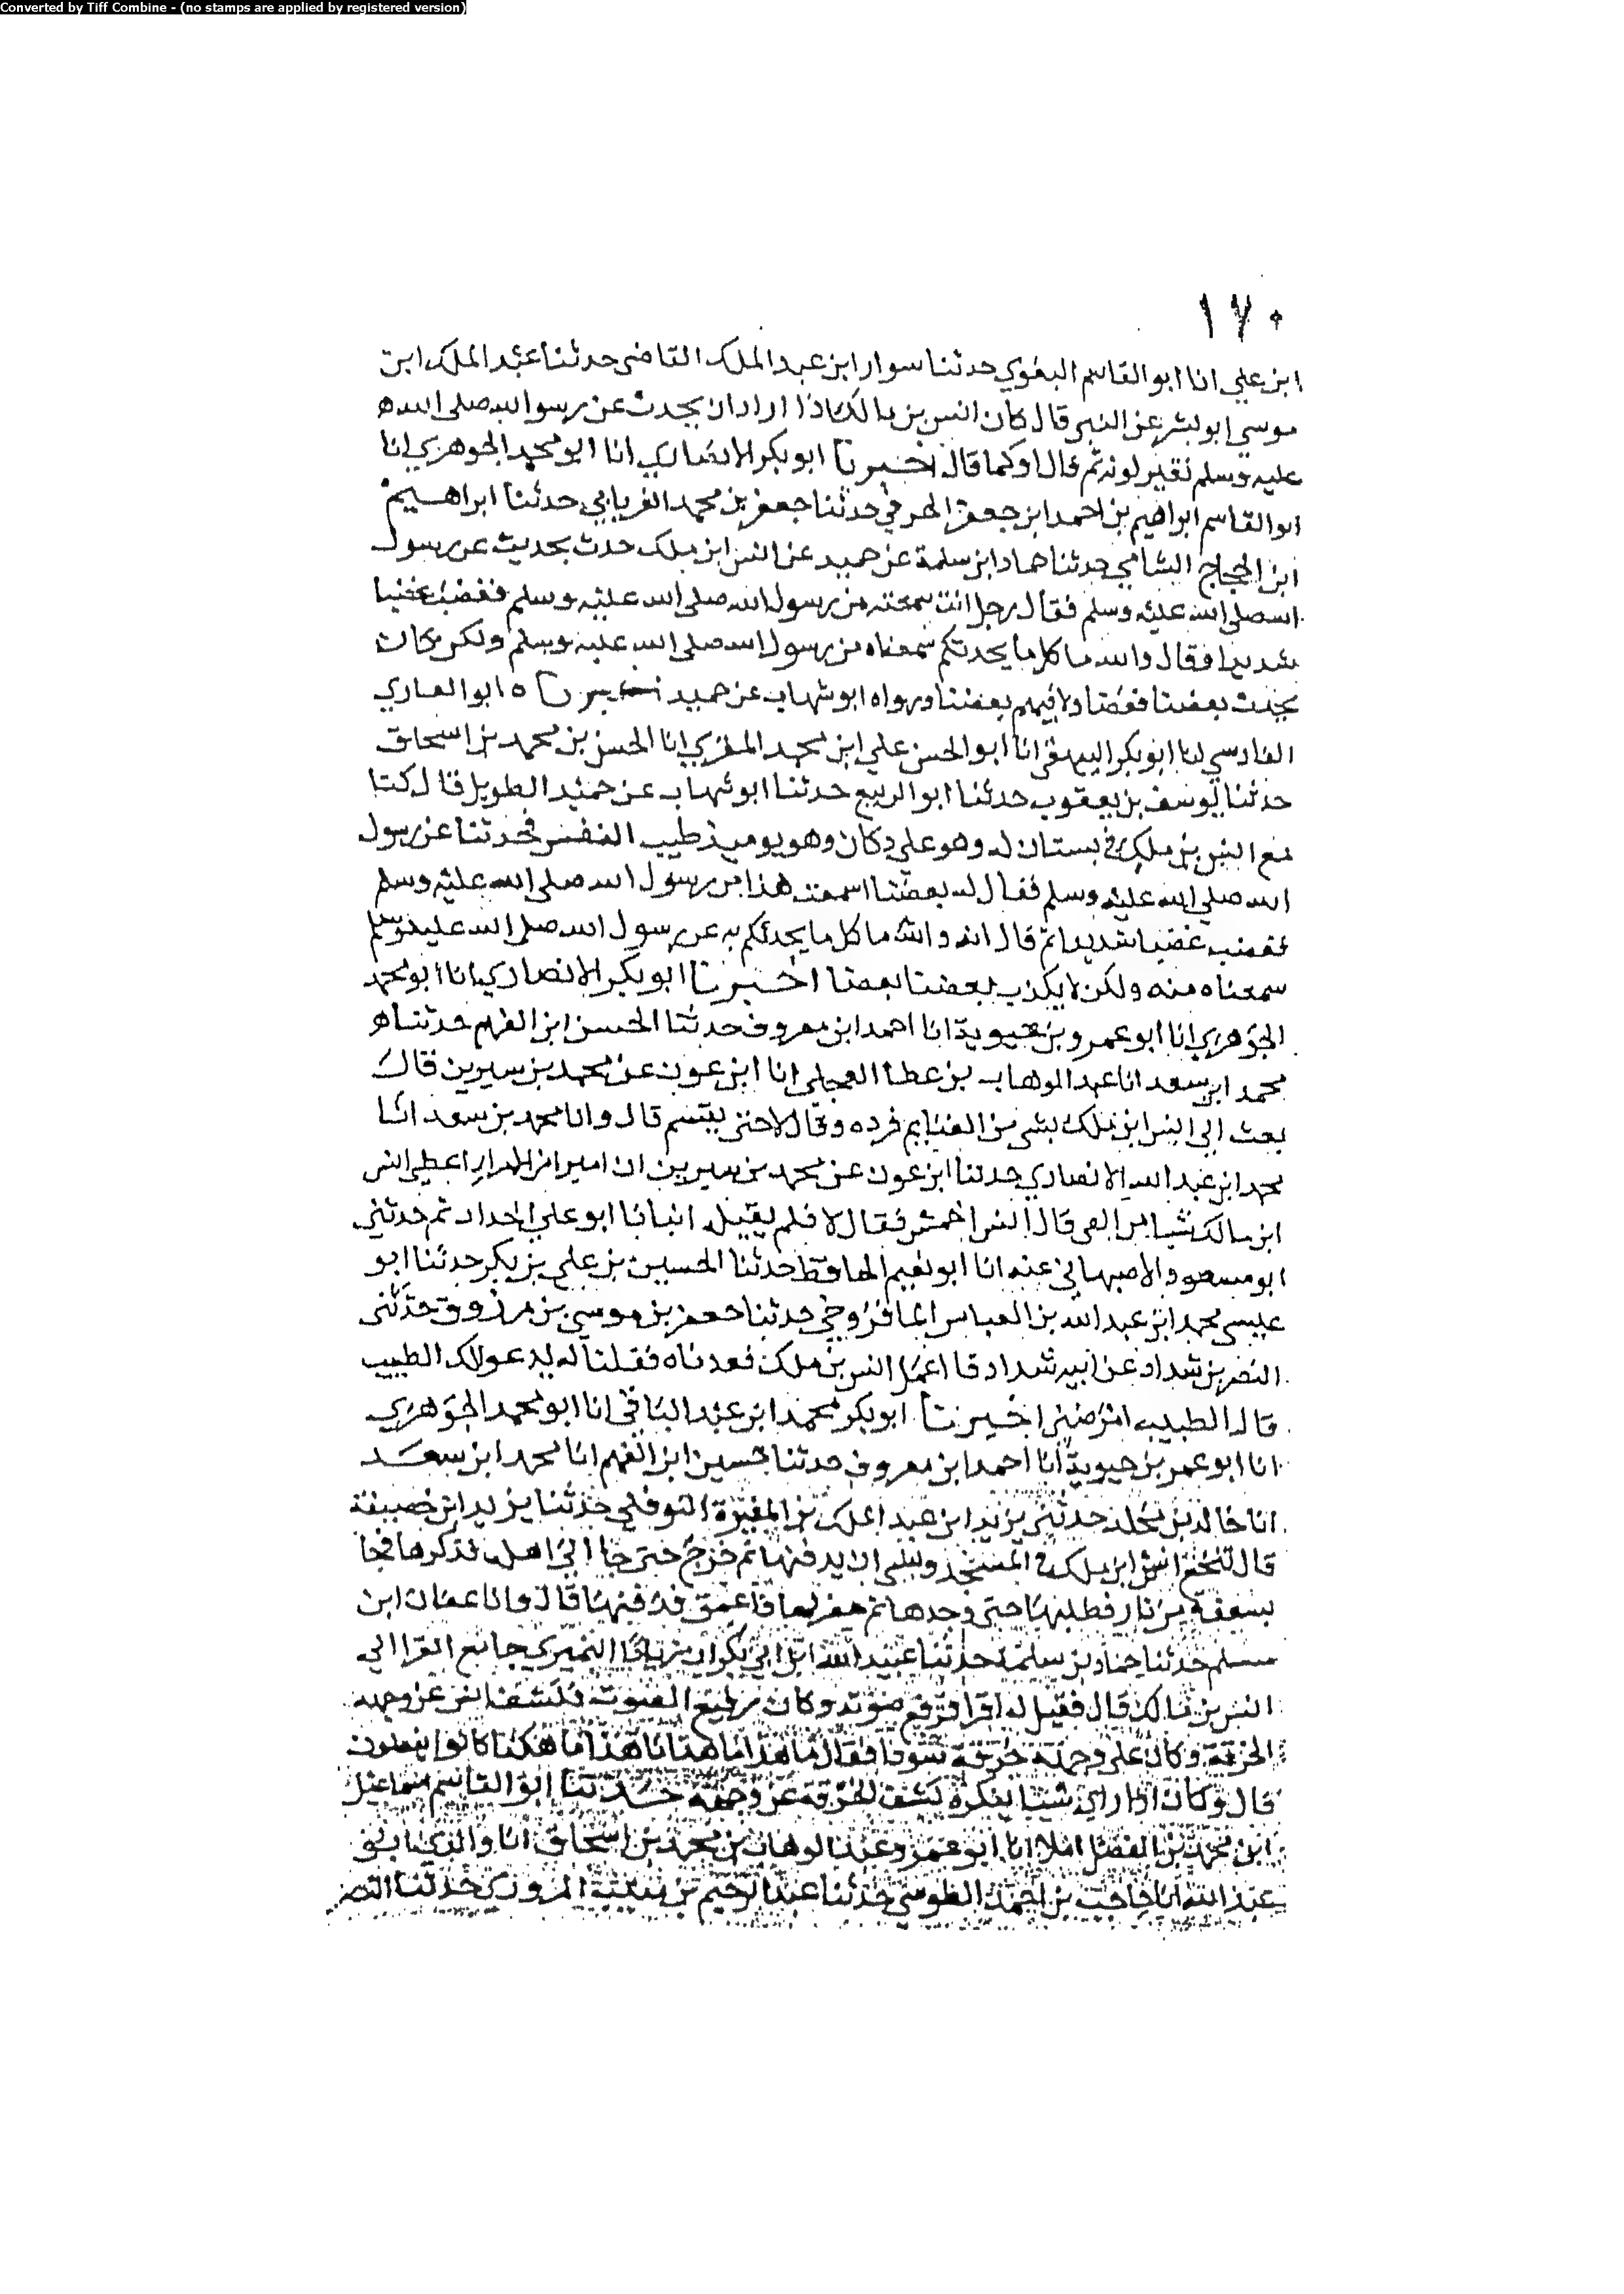 Converted by Tiff Combine - (no stamps are applied by registered version)
١٧٠
ابن علي انا ابو القاسم البغوي حدثنا سوار ابن عبد الملك القاضى حدثنا عبد الملك ابن
موسي ابو بشر عن النبر قال كان انس بن مالك اذا اراد ان يحدث عن رسول الله صلى الله
عليه وسلم تغير لونه ثم قال او كما قال اخبرنا ابو بكر الانصاري انا ابو محمد الجوهري انا
ابو القاسم ابراهيم بن احمد ابن جعفر الحرفي حدثنا جعفر بن محمد الفريابي حدثنا ابراهيم
ابن الحجاج الشامي حدثنا حماد ابن سلمة عن حميد عن انس ابن ملك حدث بحديث عن رسول
الله صلى الله عليه وسلم فقال رجل انت سمعته من رسول الله صلى الله عليه وسلم فغضب غضبا
شديدا فقال والله ما كل ما يحدثكم سمعناه من رسول الله صلى الله عليه وسلم ولكن كان
يحدث بعضنا بعضا ولا يتهم بعضنا ورواه ابو شهاب عن حميد اخبرنا ابو المعاري
الفارسي انا ابو بكر البيهقي انا ابو الحسن علي ابن محمد المقري انا الحسن بن محمد بن اسحاق
حدثنا يوسف بن يعقوب حدثنا ابو الربيع حدثنا ابو شهاب عن حميد الطويل قال كنا
مع انس بن ملك في بستان له وهو علي دكان وهو يوميذ طيب النفس فحدثنا عن رسول
الله صلي الله عليه وسلم فقال له بعضنا اسمعت هذا من رسول الله صلى الله عليه وسلم
فغضب غضبا شديدا ثم قال انه والله ما كل ما يحدثكم به عن رسول الله صلى الله عليه وسلم
سمعناه منه ولكن لا يكذب بعضنا بعضا اخبرنا ابو بكر الانصاري انا ابو محمد
الجوهري انا ابو عمرو بن حيوية انا احمد ابن معروف حدثنا الحسن ابن الفهم حدثنا
محمد ابن سعد انا عبد الوهاب بن عطا العجلي انا ابن عون عن محمد بن سيرين قال
بعث الي انس ابن ملك بشى من الغنايم فرده وقال لا حتى يقسم قال وانا محمد بن سعد انا
محمد ابن عبد الله الانصاري حدثنا ابن عون عن محمد بن سيرين ان اميرا من الامرا اعطي انس
ابن مالك شيا من الفي قال انس اخمس فقال لا فلم يقبل انبانا ابو علي الحداد ثم حدثني
ابو مسعود الاصبهاني عنه انا ابو نعيم الحافظ حدثنا الحسين بن علي بن بكر حدثنا ابو
عيسى محمد ابن عبد الله بن العباس المافروخي حدثنا جعفر بن موسى بن مرزوق حدثني
النضر بن شداد عن ابيه شداد قا اعتل انس بن ملك فعدناه فقلنا له ندعو لك الطبيب
قال الطبيب امرضني اخبرنا ابو بكر محمد ابن عبد الباقي انا ابو محمد الجوهري
انا ابو عمر بن حيوية انا احمد ابن معروف حدثنا حسين ابن الفهم انا محمد ابن سعد
انا خالد بن مخلد حدثني يزيد ابن عبد الملك بن المغيرة النوفلي حدثنا يزيد ابن خصيفة
قال تنخع انس ابن ملك في المسجد ونسى ان يدفنها ثم خرج حتى جا الي اهله فذكرها فجا
بسعفة من نار فطلبها حتى وجدها ثم حفر لها فاعمق فدفنها قال وانا عفان ابن
مسلم حدثنا حماد بن سلمة حدثنا عبيد الله ابن ابي بكر ان زيادا النميري جا مع القرا الي
انس بن مالك قال فقيل له اقرا فرفع صوته وكان رفيع الصوت فكشف انس عن وجهه
الخرقة وكان على وجهه خرقة سودا فقال ما هذا ما هذا ما هكذا كانوا يفعلون
قال وكان اذا راي شيا ينكره كشف الخرقة عن وجهه حدثنا ابو القاسم اسماعيل
ابن محمد بن الفضل املا انا ابو عمرو عبد الوهاب بن محمد بن اسحاق انا والدي ابو
عبد الله انا حاجب بن احمد الطوسي حدثنا عبد الرحيم بن منيب المروزي حدثنا النضر